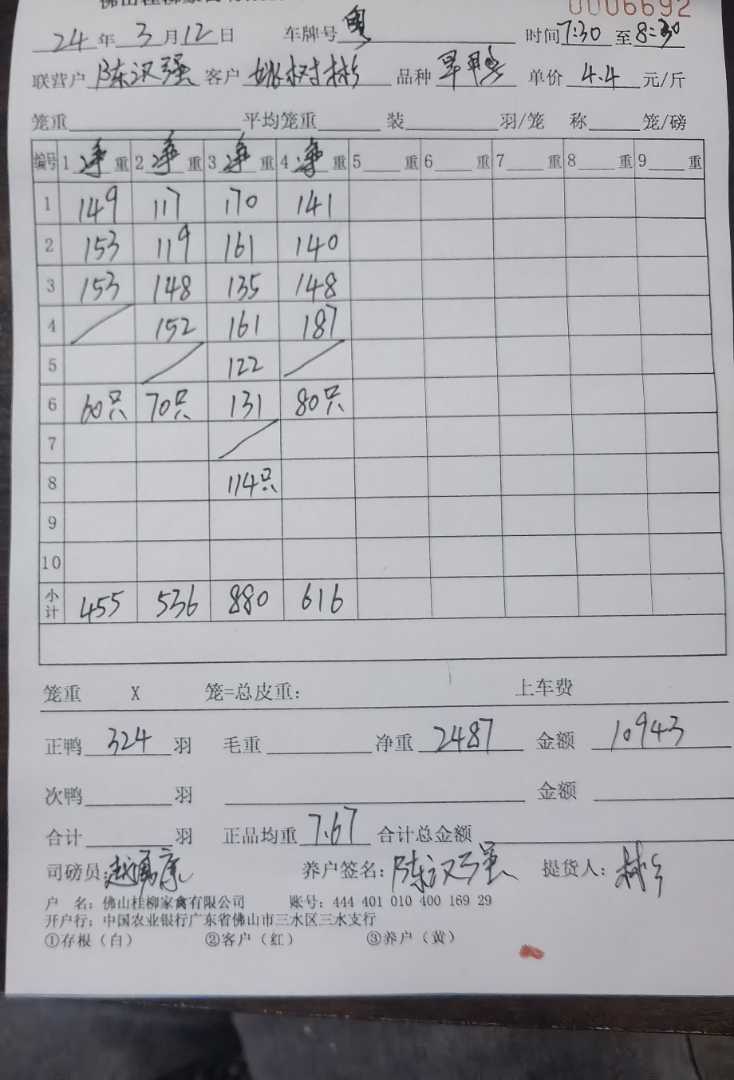 0006692
24年3月12日 车牌号粤 时间7:30至8:30
联营户陈汉强 客户姚树彬 品种旱鸭 单价4.4元/斤
笼重 平均笼重 装 羽/笼 称 笼/磅
编号 1净重 2净重 3净重 4净重 5 重 6 重 7 重 8 重 9 重
1 149 117 170 141
2 153 119 161 140
3 153 148 135 148
4 / 152 161 187
5 / 122 /
6 60只 70只 131 80只
7 /
8 114只
9
10
小计 455 536 880 616
笼重 X 笼=总皮重: 上车费
正鸭324羽 毛重 净重2487 金额10943
次鸭 羽 金额
合计 羽 正品均重7.67 合计总金额
司磅员:赵勇康 养户签名:陈汉强 提货人:
户 名:佛山桂柳家禽有限公司 账号:444 401 010 400 169 29
开户行:中国农业银行广东省佛山市三水区三水支行
①存根(白) ②客户(红) ③养户(黄)